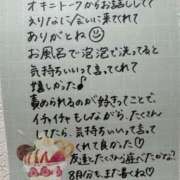 オキニトークからお話しして
えりなに会いに来てくれて
ありがとね
お風呂で泡泡で洗ってると
気持ちいいって言ってくれて
嬉しかった♪
責められるのが好きってことで、
イチャイチャもしながら、たくさん
したら、気持ちいいって言って
くれて良かった
友達とたくさん遊べたかな?
8月分も、また書くね